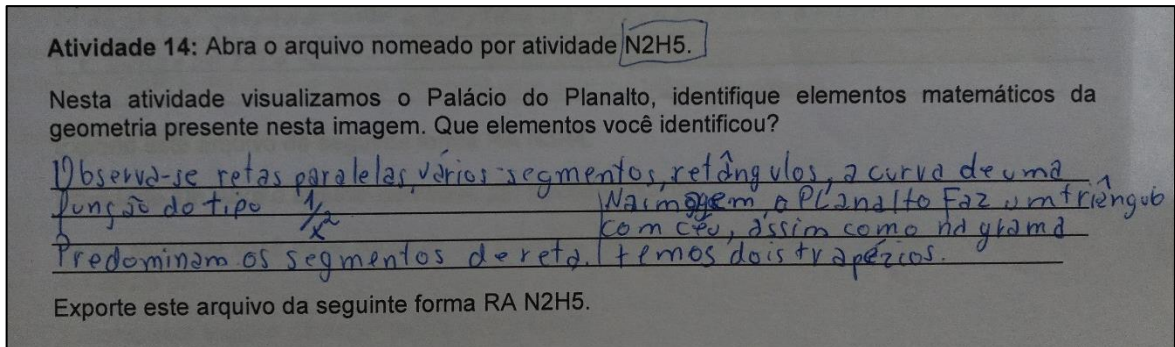 Atividade 14: Abra o arquivo nomeado por atividade N2H5.
Nesta atividade visualizamos o Palácio do Planalto, identifique elementos matemáticos da
geometria presente nesta imagem. Que elementos você identificou?
Observa-se retas paralelas, vários segmentos, retângulos, a curva de uma
função do tipo 1/x²
Predominam os segmentos de reta.
Na imagem, o Planalto Faz um triângulo
com céu, assim como na grama
temos dois trapézios.
Exporte este arquivo da seguinte forma RA N2H5.